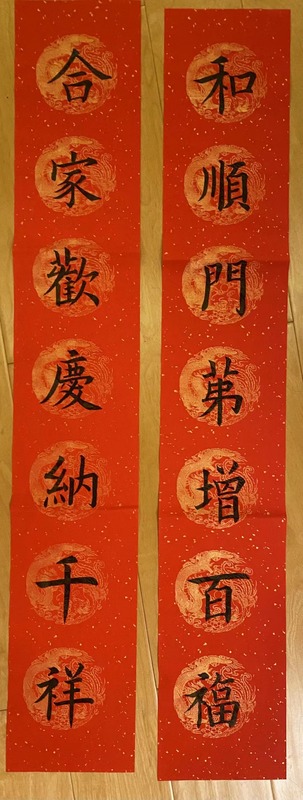 和順門苐增百福
合家歡慶納千祥